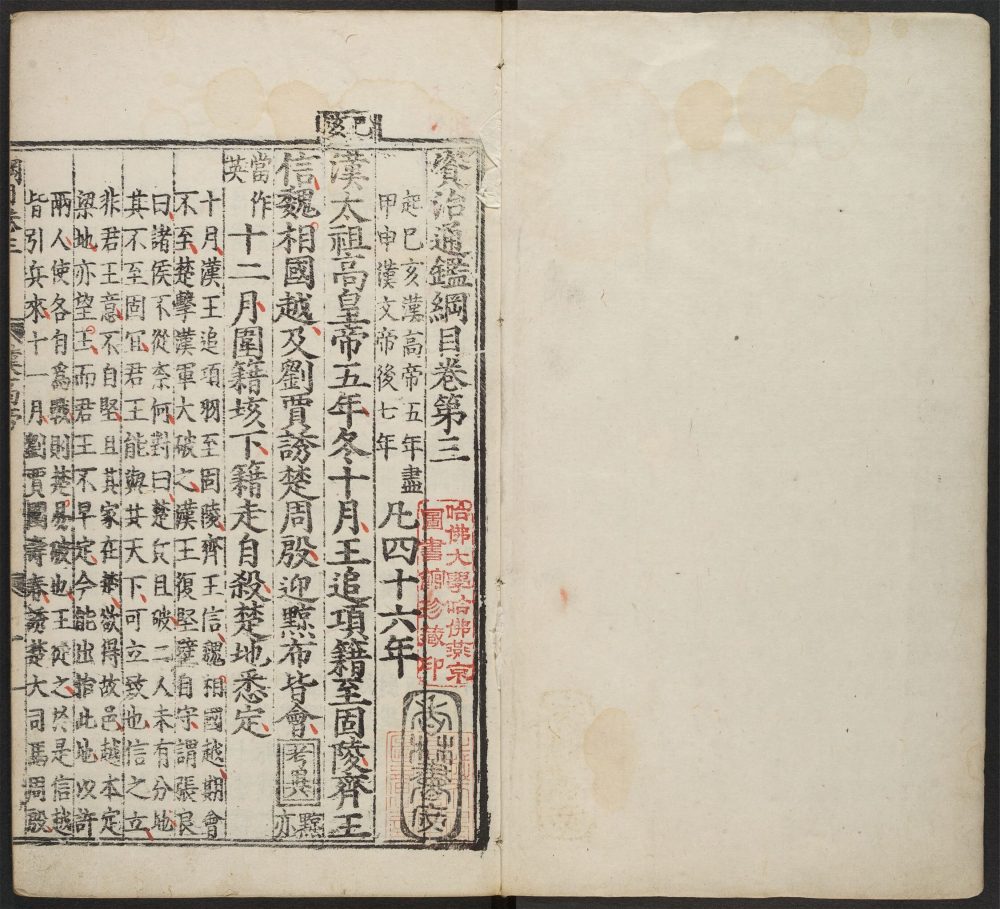 己亥
資治通鑑綱目卷第三
起己亥漢高帝五年盡
甲申漢文帝後七年
凡四十六年
漢太祖高皇帝五年冬十月王追項籍至固陵齊王
信魏相國越及劉賈誘楚周殷迎黥布皆會考異黥亦
當作英十二月圍籍垓下籍走自殺楚地悉定
十月漢王追項羽至固陵齊王信魏相國越期會
不至楚擊漢軍大破之漢王復堅壁自守謂張良
曰諸侯不從奈何對曰楚兵且破二人未有分地
其不至固宜君王能與共天下可立致也信之立
非君王意不自堅且其家在楚欲得故邑越本定
梁地亦望王而君王不早定今能出捐此地以許
兩人使各自為戰則楚易破也王從之於是信越
皆引兵來十一月劉賈圍壽春誘楚大司馬周殷
哈佛大學哈佛燕京
圖書館珍藏印